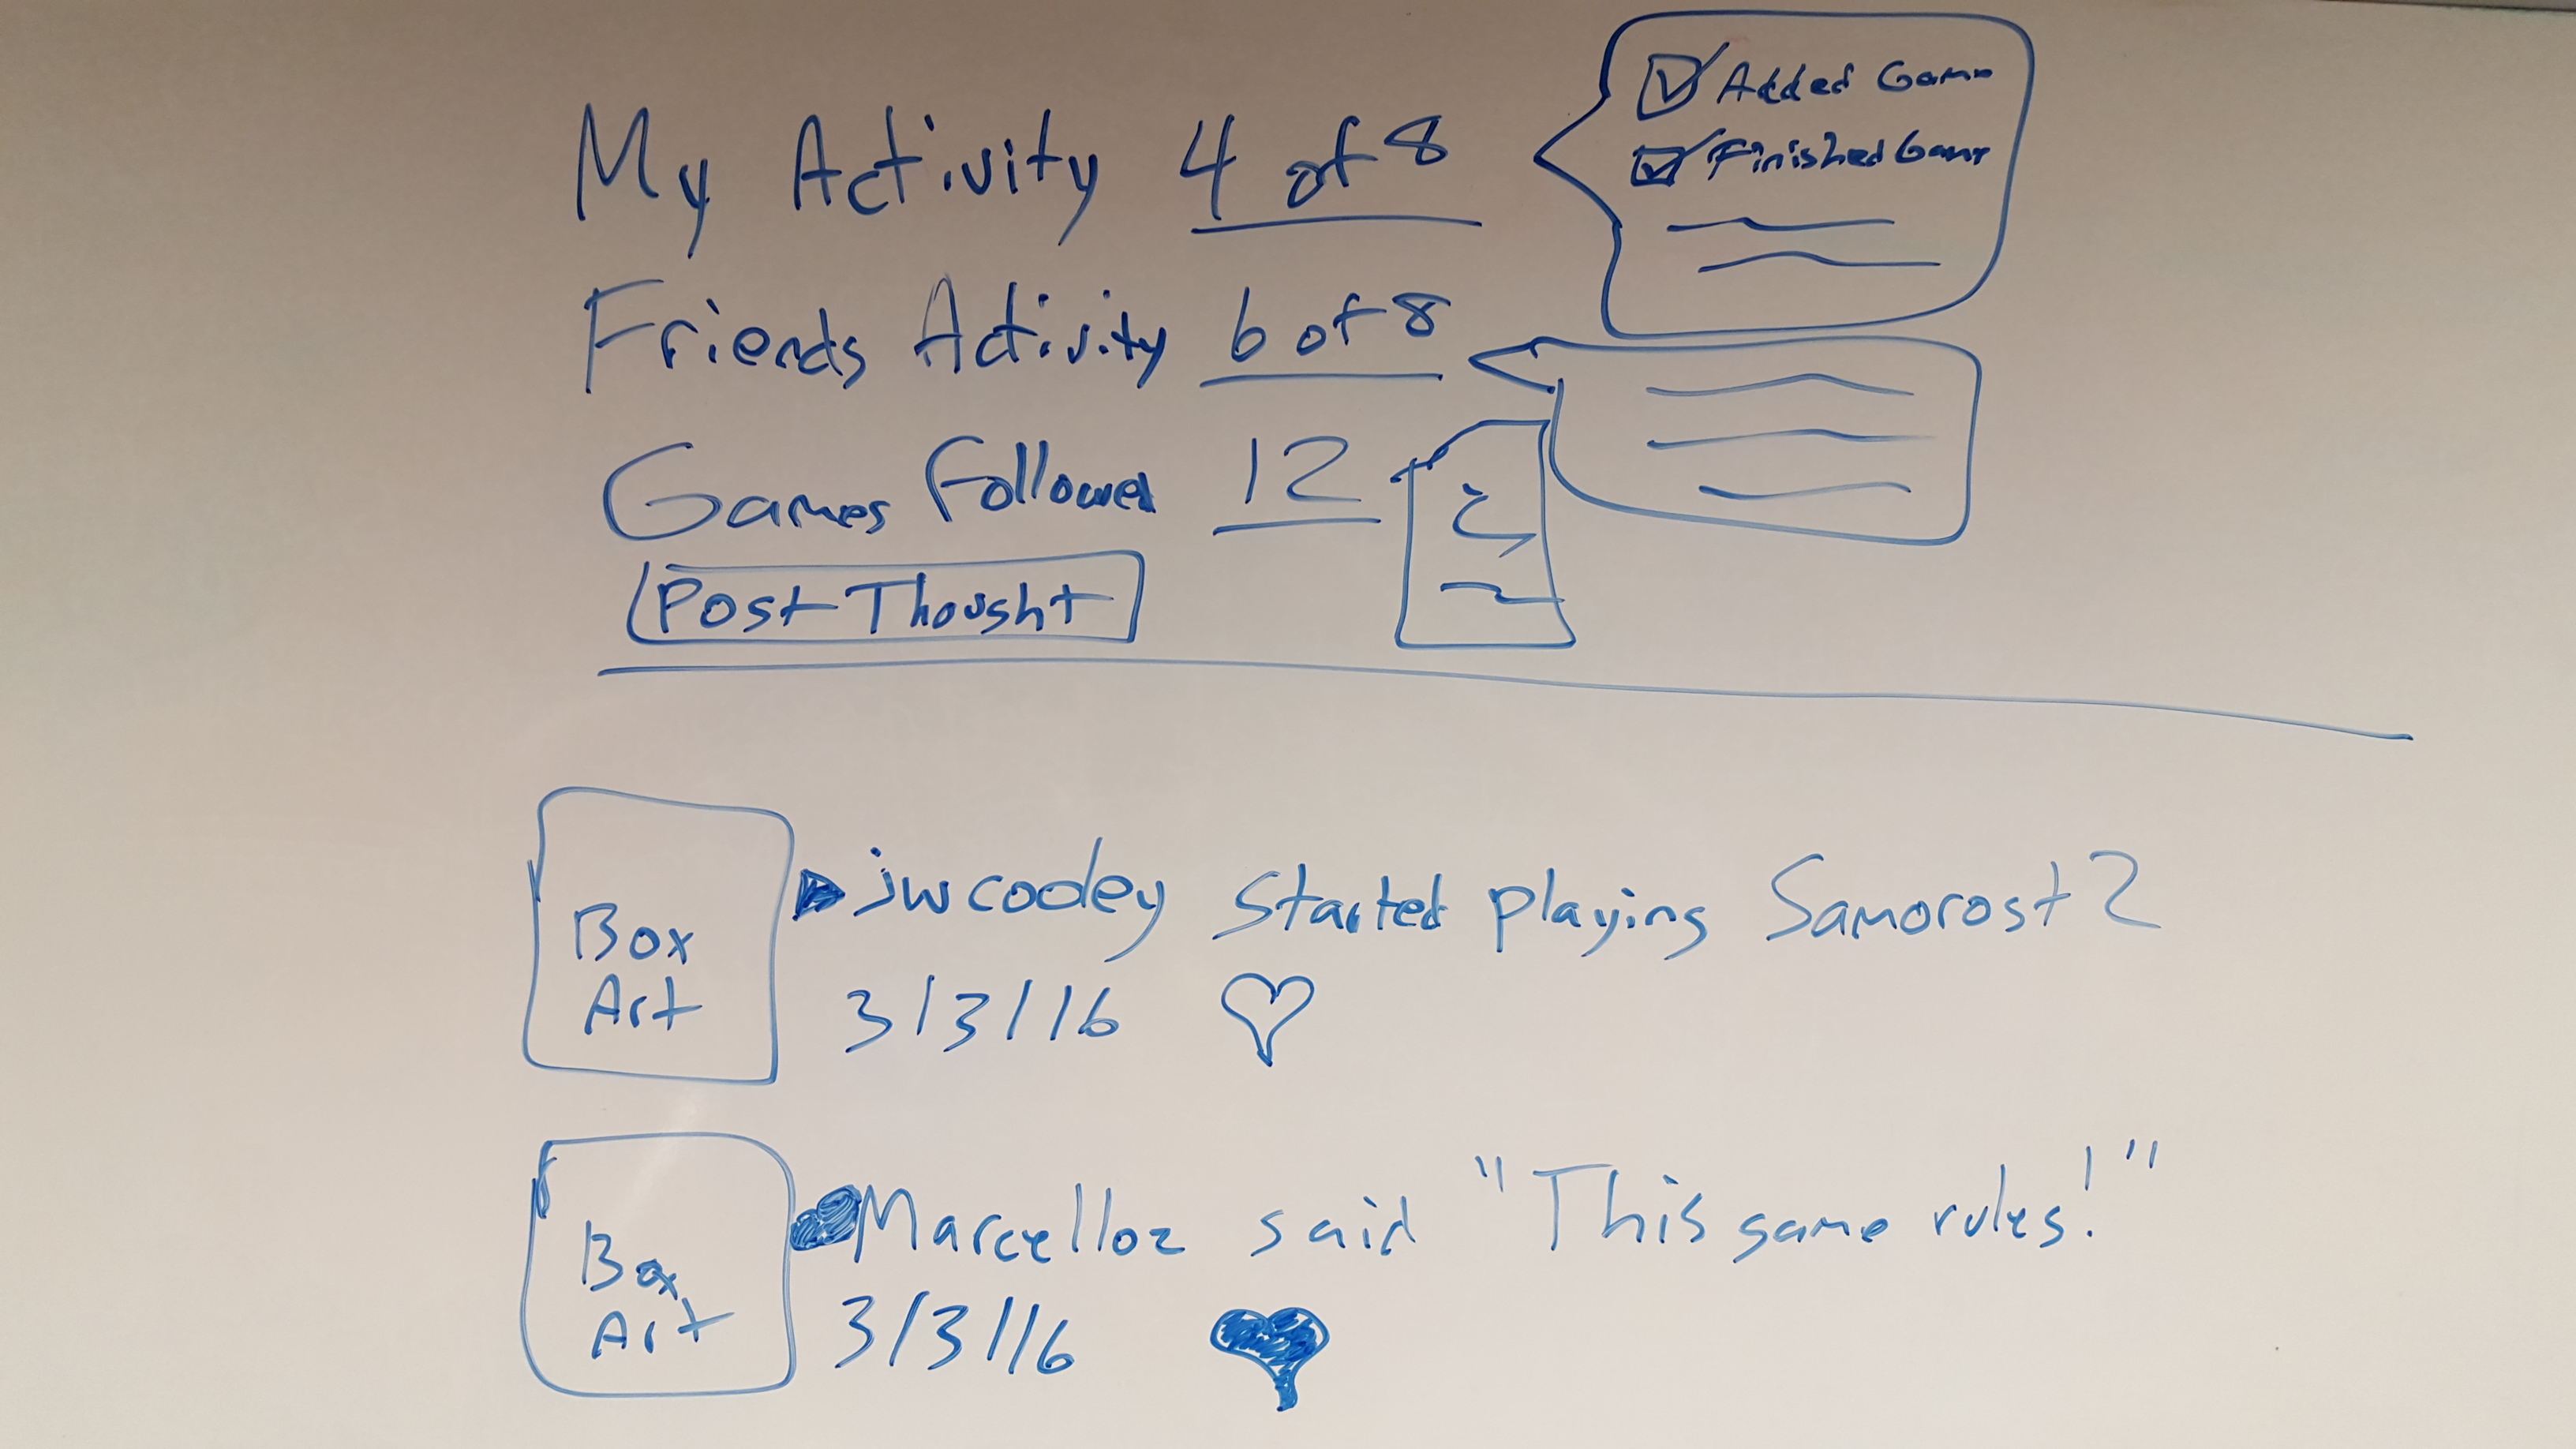 My Activity 4 of 8
Added Game
Finished Game
Friends Activity 6 of 8
Games Followed 12
Post Thought
Box
Art
jwcooley Started playing Samorost 2
3/3/16
Box
Art
Marcelloz said "This game rules!"
3/3/16